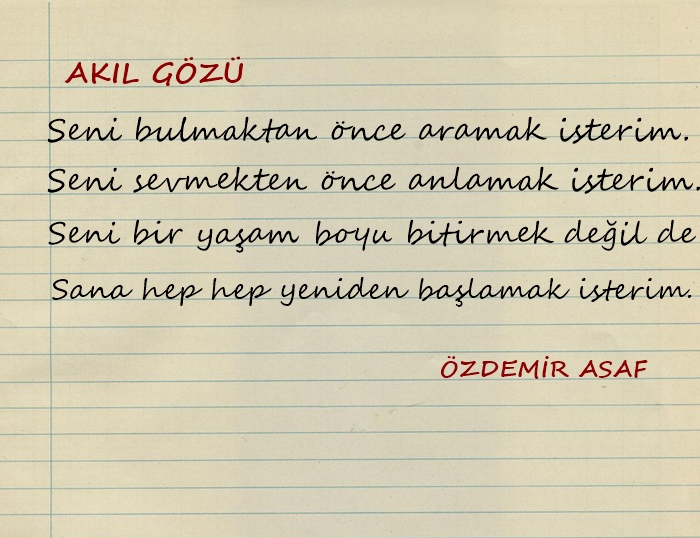 AKIL GÖZÜ
Seni bulmaktan önce aramak isterim.
Seni sevmekten önce anlamak isterim.
Seni bir yaşam boyu bitirmek değil de
Sana hep hep yeniden başlamak isterim.
ÖZDEMİR ASAF